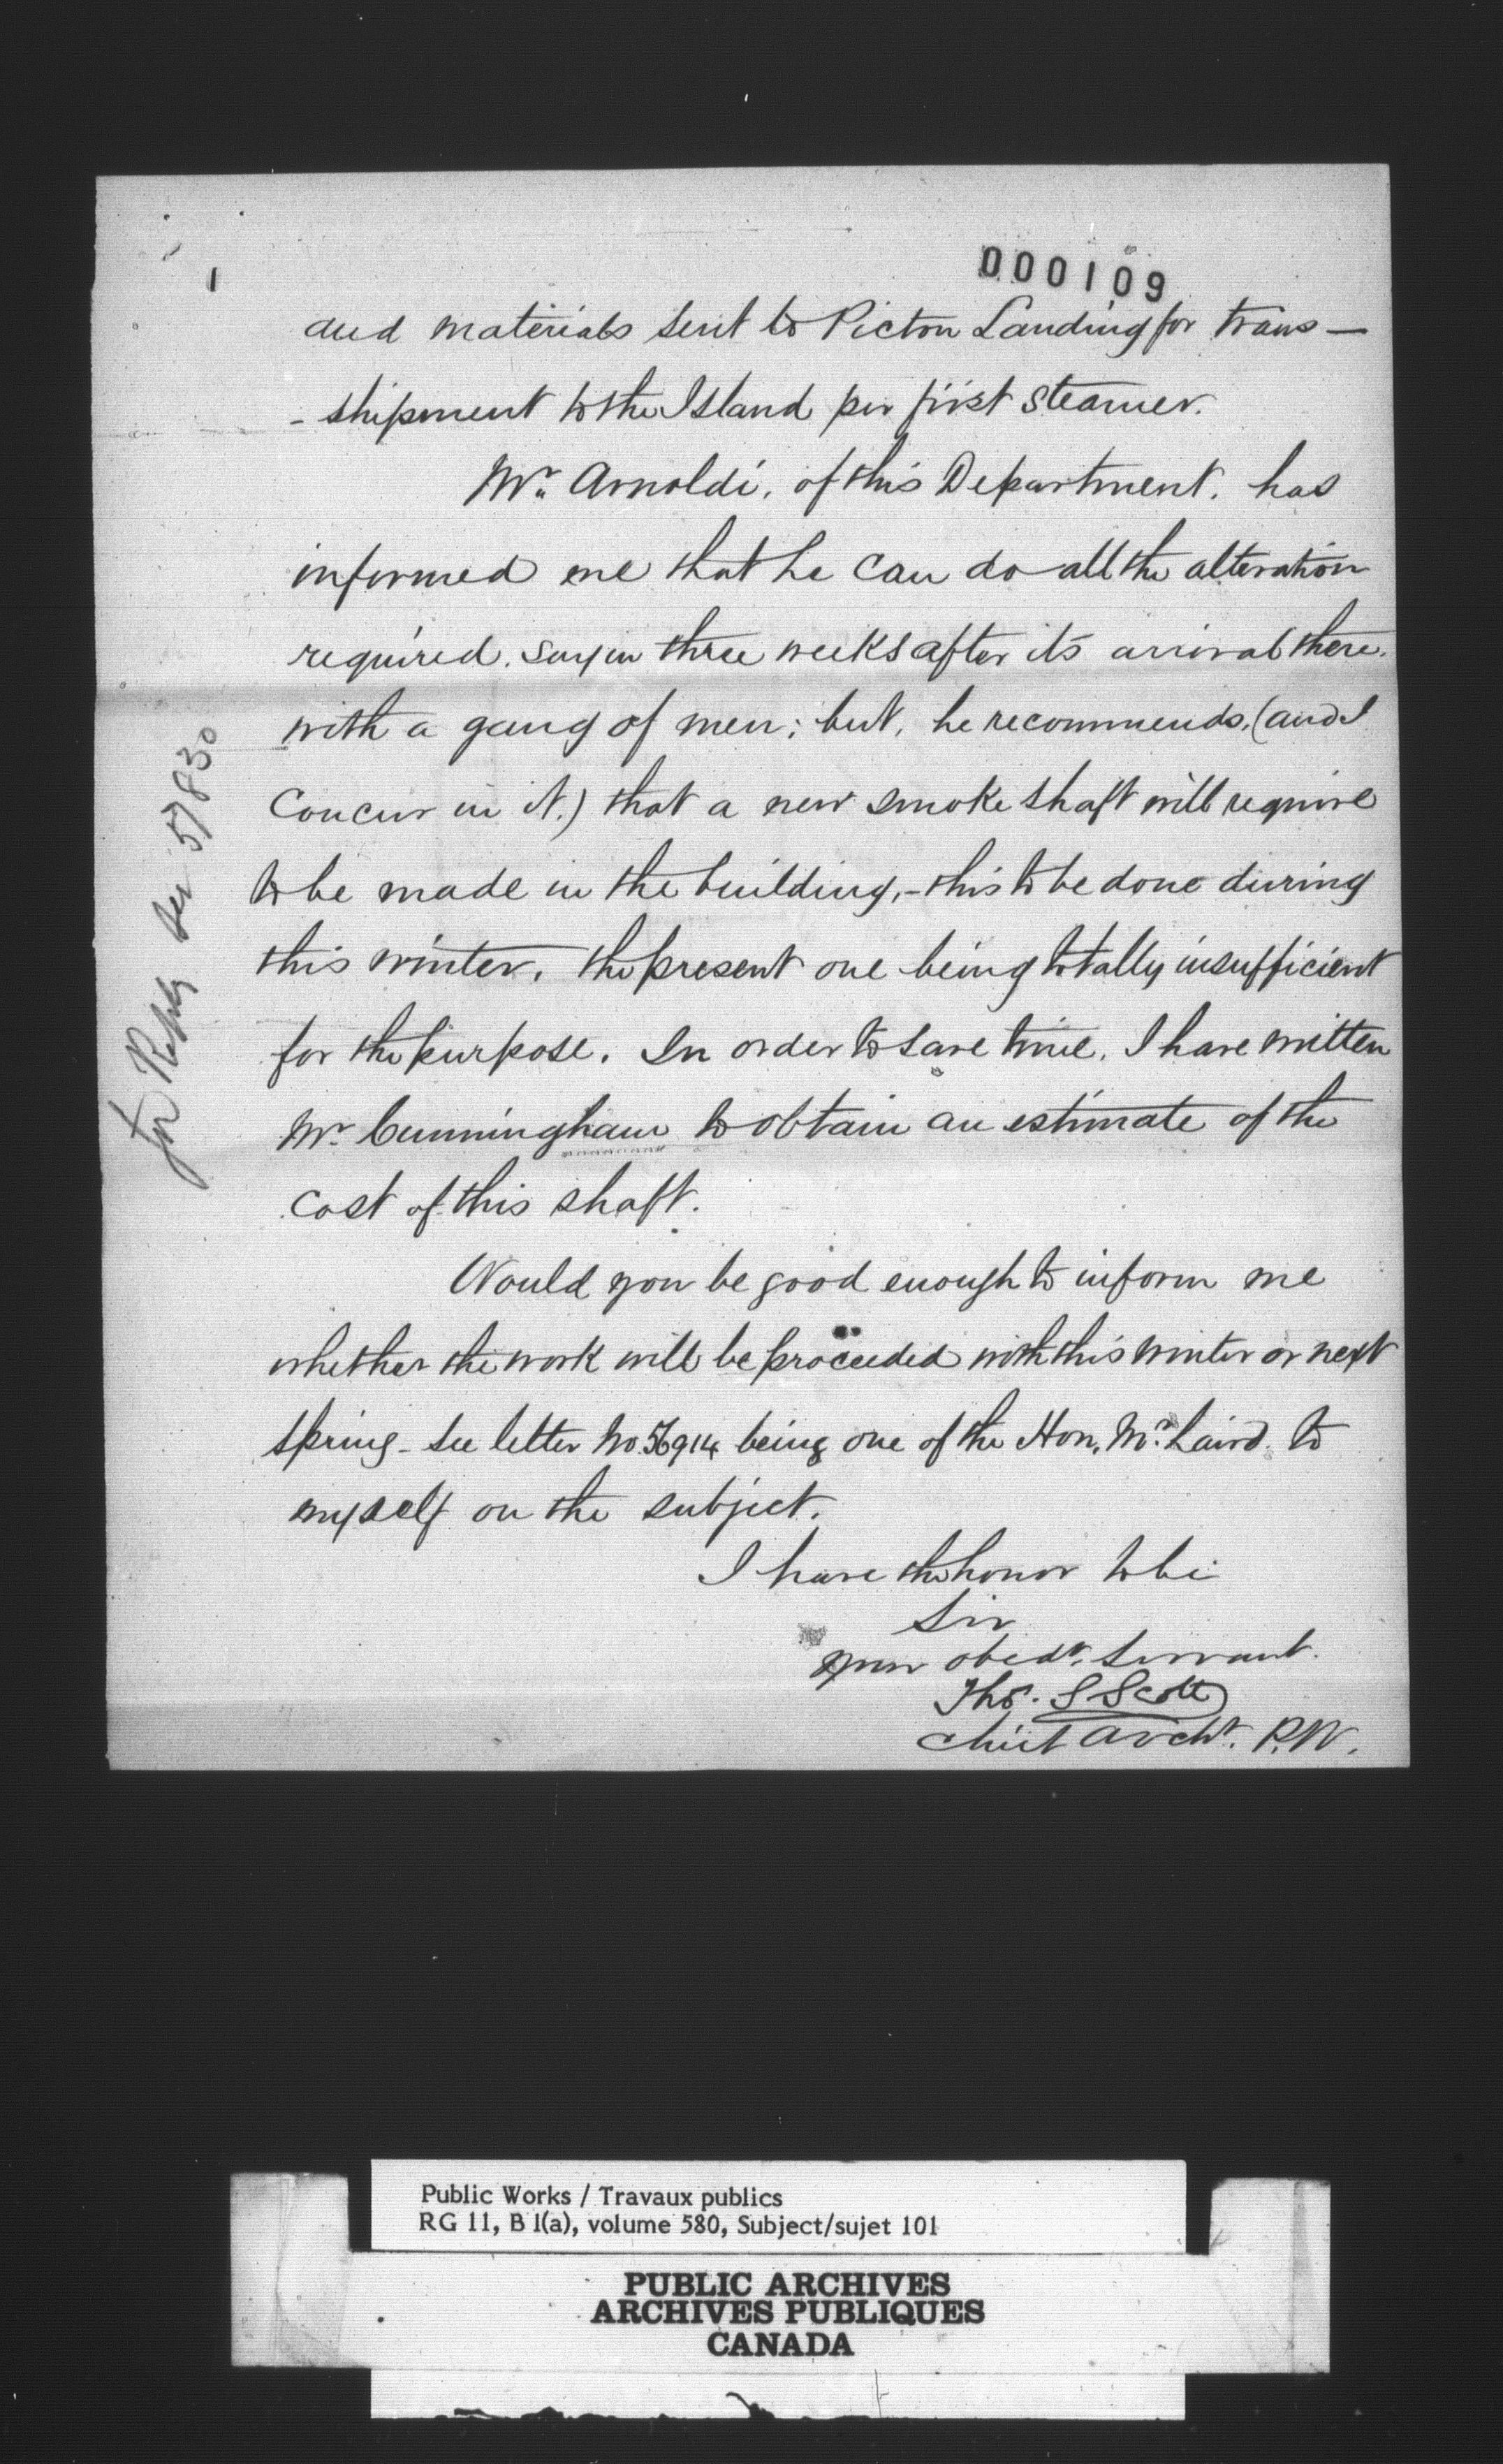 000109
and materials sent to Picton Landing for trans—
- shipment to the Island per first steamer.
Mr. Arnoldi, of this Department, has
informed me that he can do all the alteration
required, say in three weeks after its arrival there,
with a gang of men; but, he recommends, (and I
concur in it.) that a new smoke shaft will require
to be made in the building, - this to be done during
this winter, the present one being totally insufficient
for the purpose. In order to save time, I have written
Mr. Cunningham to obtain an estimate of the
cost of this shaft.
Would you be good enough to inform me
whether the work will be proceeded with this winter or next
spring - See letter No. 56914 being one of the Hon. Mr. Laird to
myself on the subject.
I have the honor to be
Sir
your obedt. Servant.
Thos. S Scott
Chief Archt. P.W.
for Reply see 57830
Public Works / Travaux publics
RG 11, B 1(a), volume 580, Subject/sujet 101
PUBLIC ARCHIVES
ARCHIVES PUBLIQUES
CANADA